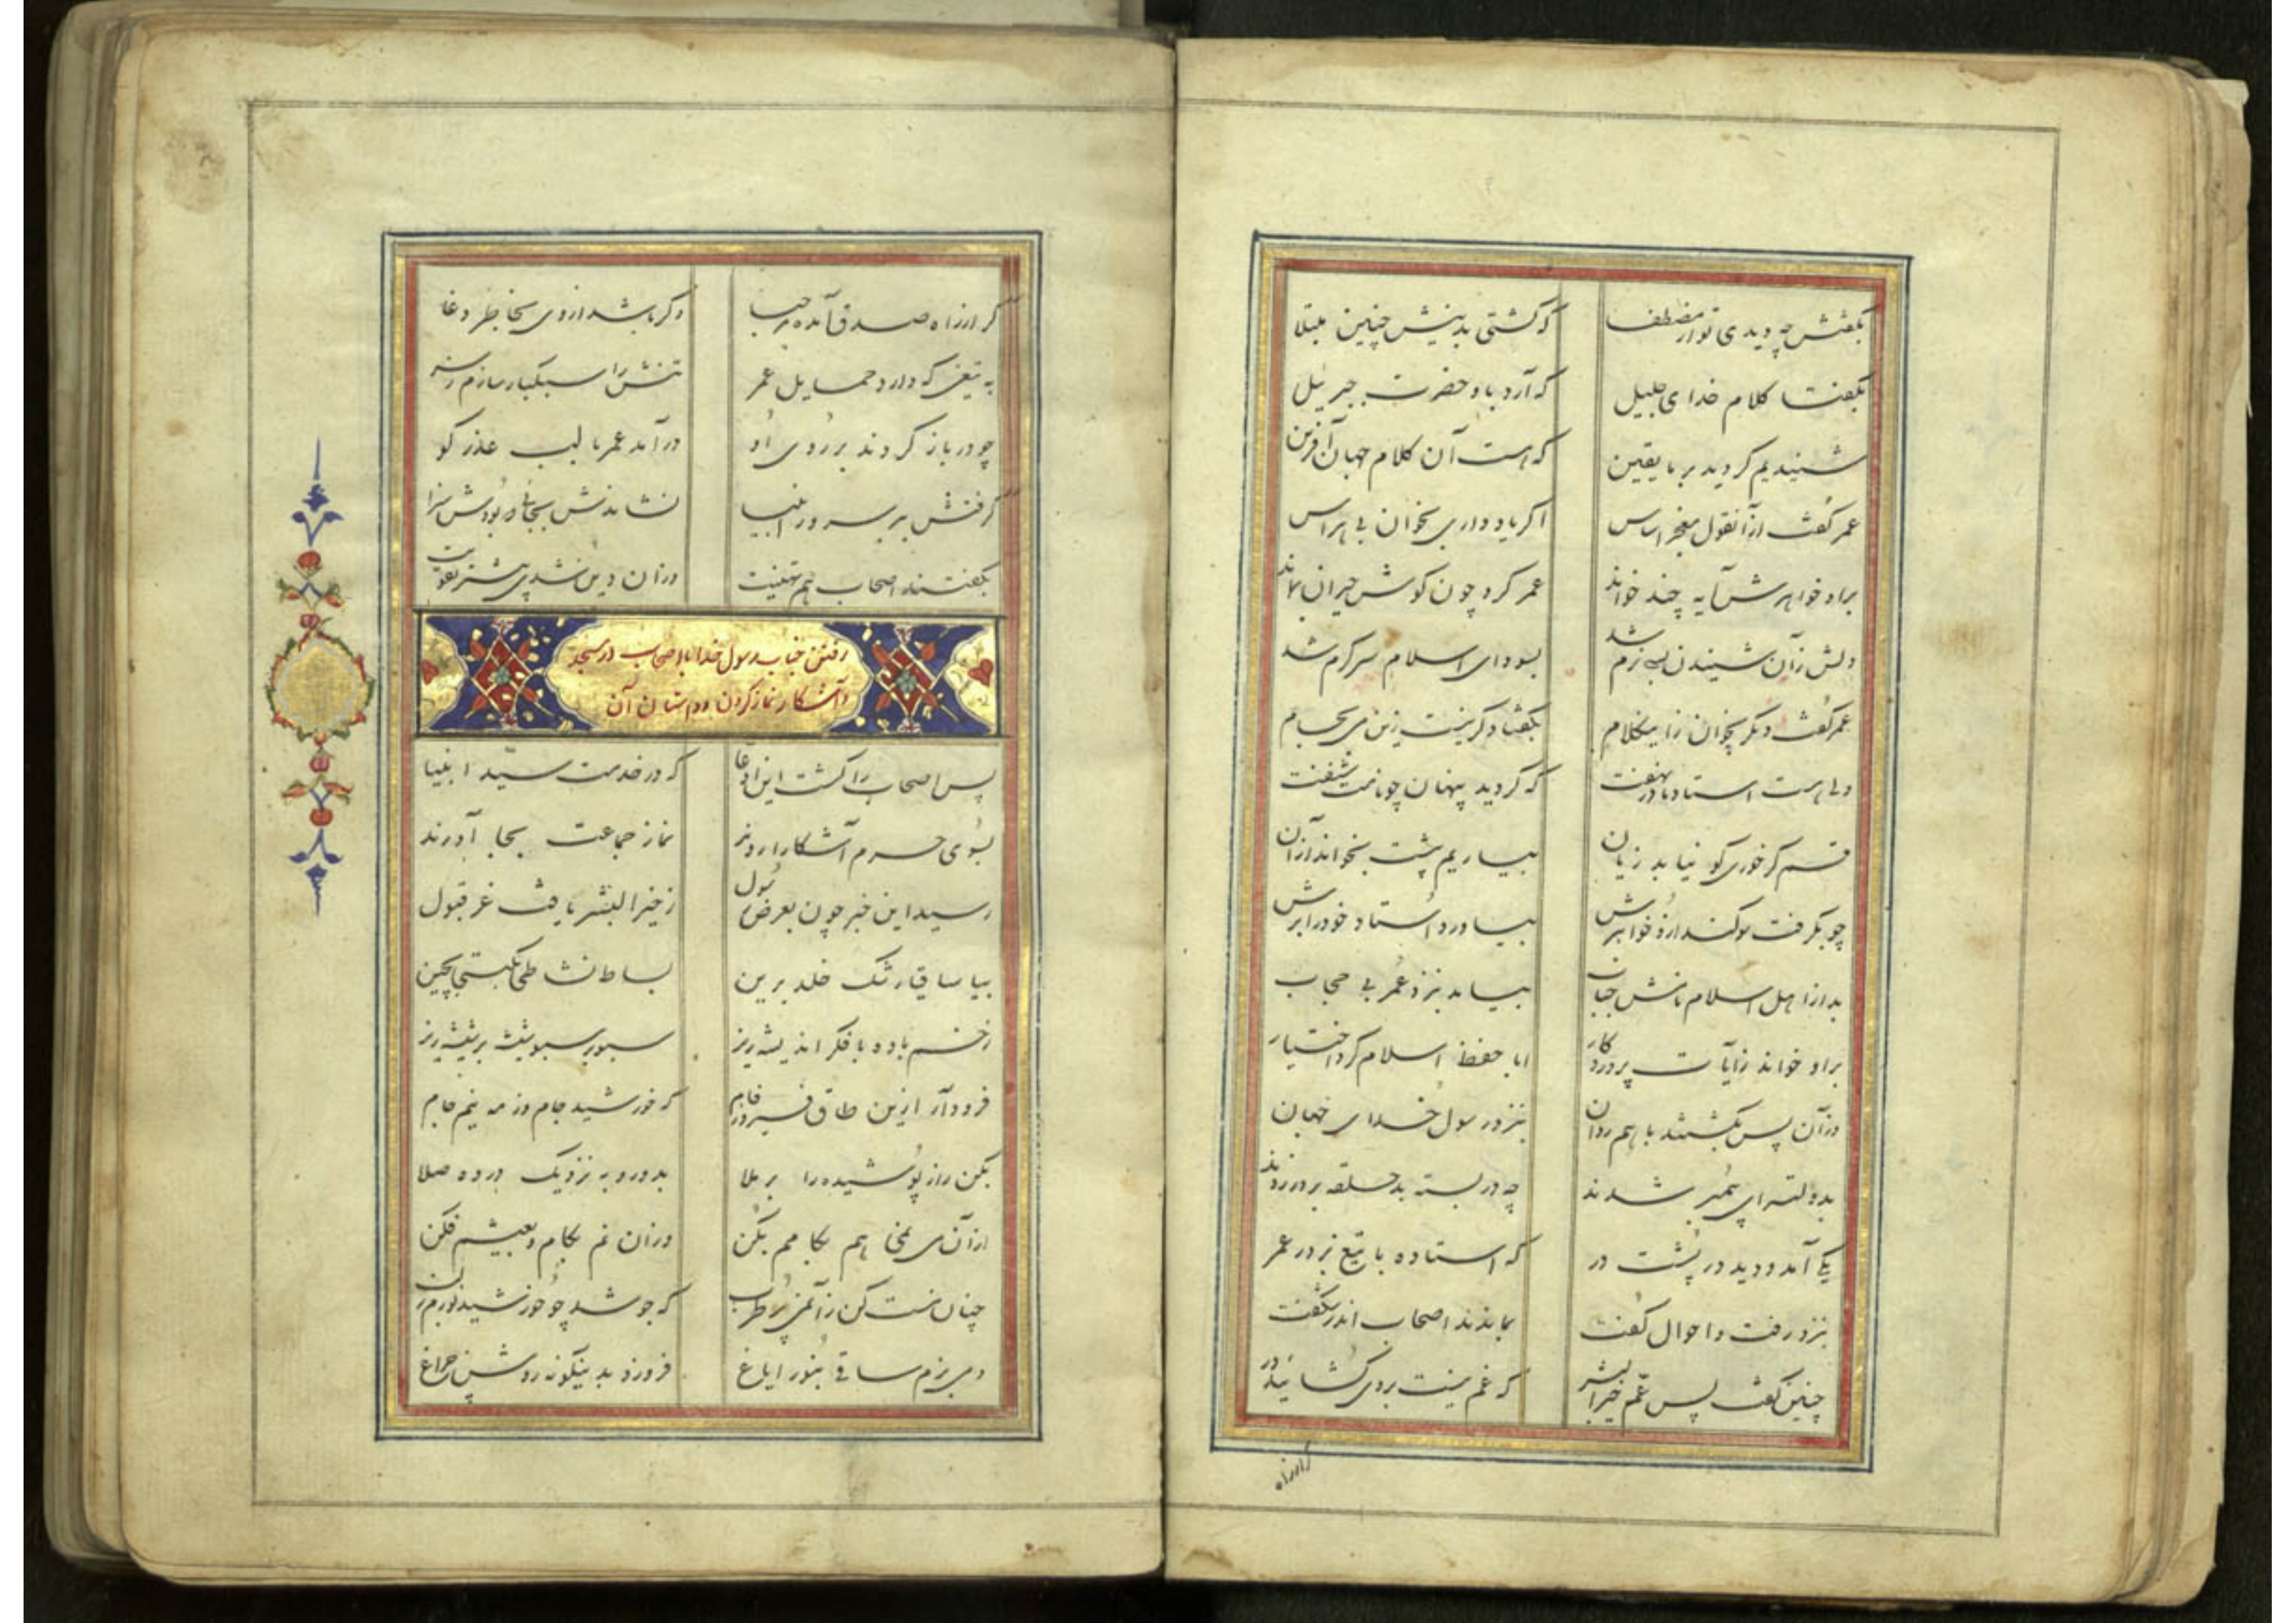 بگفتش چه دیدی تو از مصطفی که گشتی بدینش چنین مبتلا
بگفتا کلام خدای جلیل که آرد باو حضرت جبرئیل
شنیدیم گردید بر ما یقین که هست آن کلام جهان آفرین
عمر گفت از آنقول معجز اساس اگر یاد داری بخوان بی هراس
براو خواهرش آیه چند خواند عمر کرد چون گوش حیران بماند
دلش زآن شنیدن بسی نرم شد بسودای اسلام سرگرم شد
عمر گفت دیگر بخوان زاینکلام بگفتا دگر نیست زین می بجام
ولی هست استاد ما در نهفت که گردید پنهان چو نامت شنفت
قسم گر خوری کو نیابد زیان بیاریم پیشت بخواند از آن
چو بگرفت سوگند ازو خواهرش بیاورد استاد خود را برش
بد از اهل اسلام نامش خباب بیامد بنزد عمر بی حجاب
براو خواند زآیات پروردگار ابا حفظ اسلام کرد اختیار
وزآن پس بگشتند با هم روان بنزد رسول خدای جهان
بدولتسرای پیمبر شدند چه در بسته بد حلقه بر در زدند
یکی آمد و دید در پشت در که استاده با تیغ بر در عمر
بنزد رفت و احوال گفت بماندند اصحاب اندر شگفت
چنین گفت پس عم خیرالبشر که غم نیست بر وی گشائید در
گر از راه
گر از راه صدق آمده مرحبا وگر باشد او را بخاطر دغا
به تیغی که دارد حمایل عمر تنش را سبکبار سازم ز سر
چو در باز کردند بر روی او در آمد عمر با لب عذر گو
گرفتش ببر سرور انبیا نشاندش بجائی که بودش سزا
بگفتند اصحاب هم تهنیت وزان دین شدی بیشتر تقویت
رفتن جناب رسول خدا با اصحاب در مسجد
و آشکار نماز کردن و داستان آن
پس اصحاب را گشت این ادعا که در خدمت سید انبیا
بسوی حرم آشکارا روند نماز جماعت بجا آورند
رسید این خبر چون بعرض رسول ز خیر البشر یافت عز قبول
بیا ساقی رشک خلد برین بساط نشاطی بگیتی بچین
ز خم باده با فکر اندیشه ریز سبو بر سبو شیشه بر شیشه ریز
فرود آر ازین طاق فیروزه فام که خورشید جام و ز مه نیم جام
بکن راز پوشیده را برملا بدور و به نزدیک در ده صلا
از آن می هم بکامم بکن وزان غم بکام فکن
چنان مست کن زآن می پر طرب که جوشد چو خورشید نورم ز لب
دمی بزم ساقی بنور ایاغ فروزد بدینگونه روشن چراغ